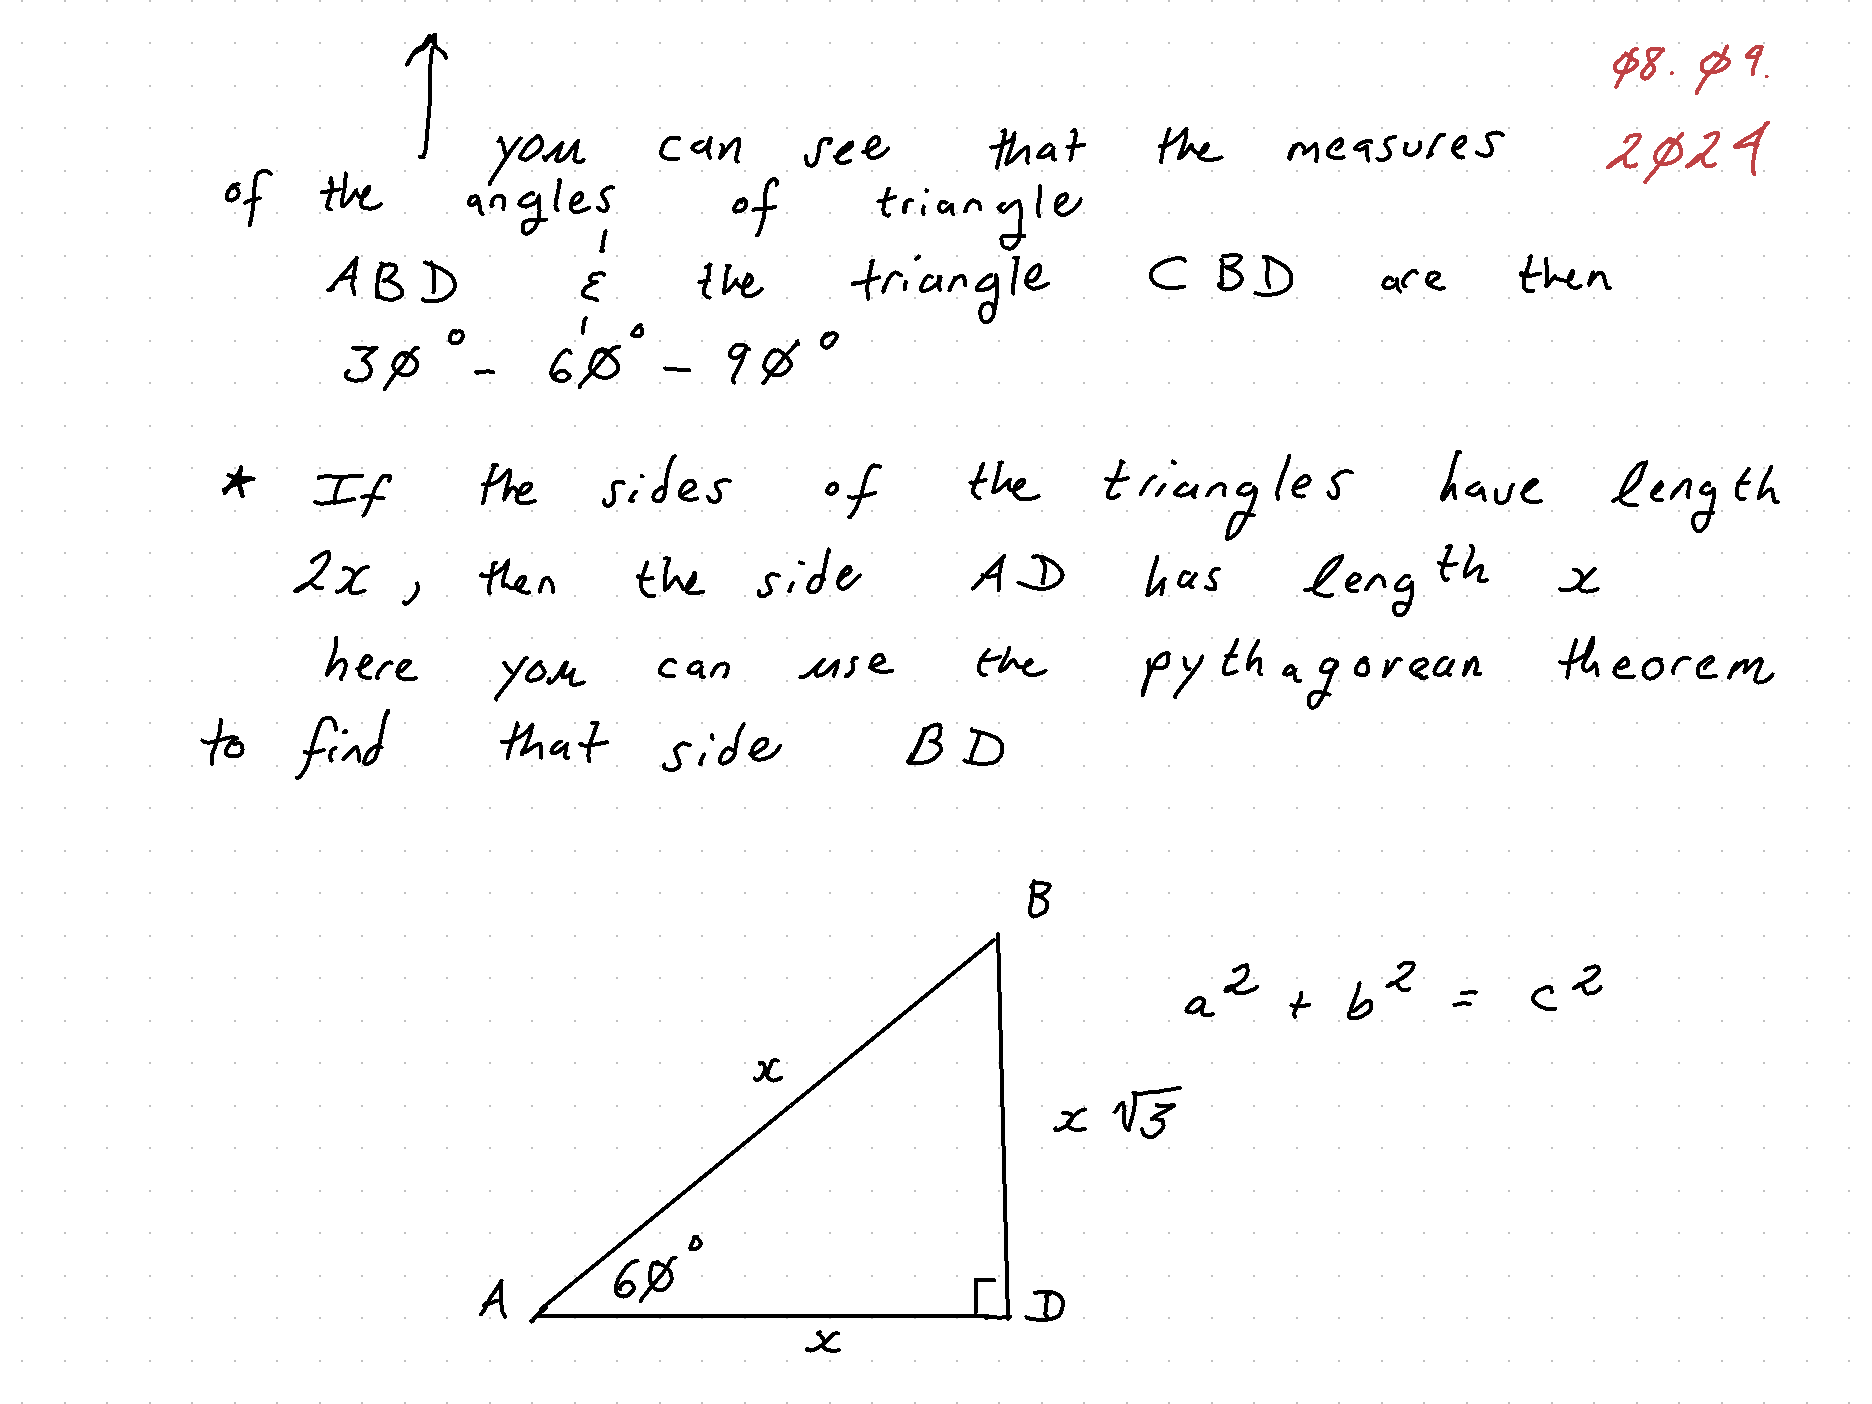 ø8. ø9.
you can see that the measures 2ø24
of the angles of triangle
ABD & the triangle CBD are then
3ø° - 6ø° - 9ø°
* If the sides of the triangles have length
2x, then the side AD has length x
here you can use the pythagorean theorem
to find that side BD
B
a² + b² = c²
x
x √3
6ø°
A D
x